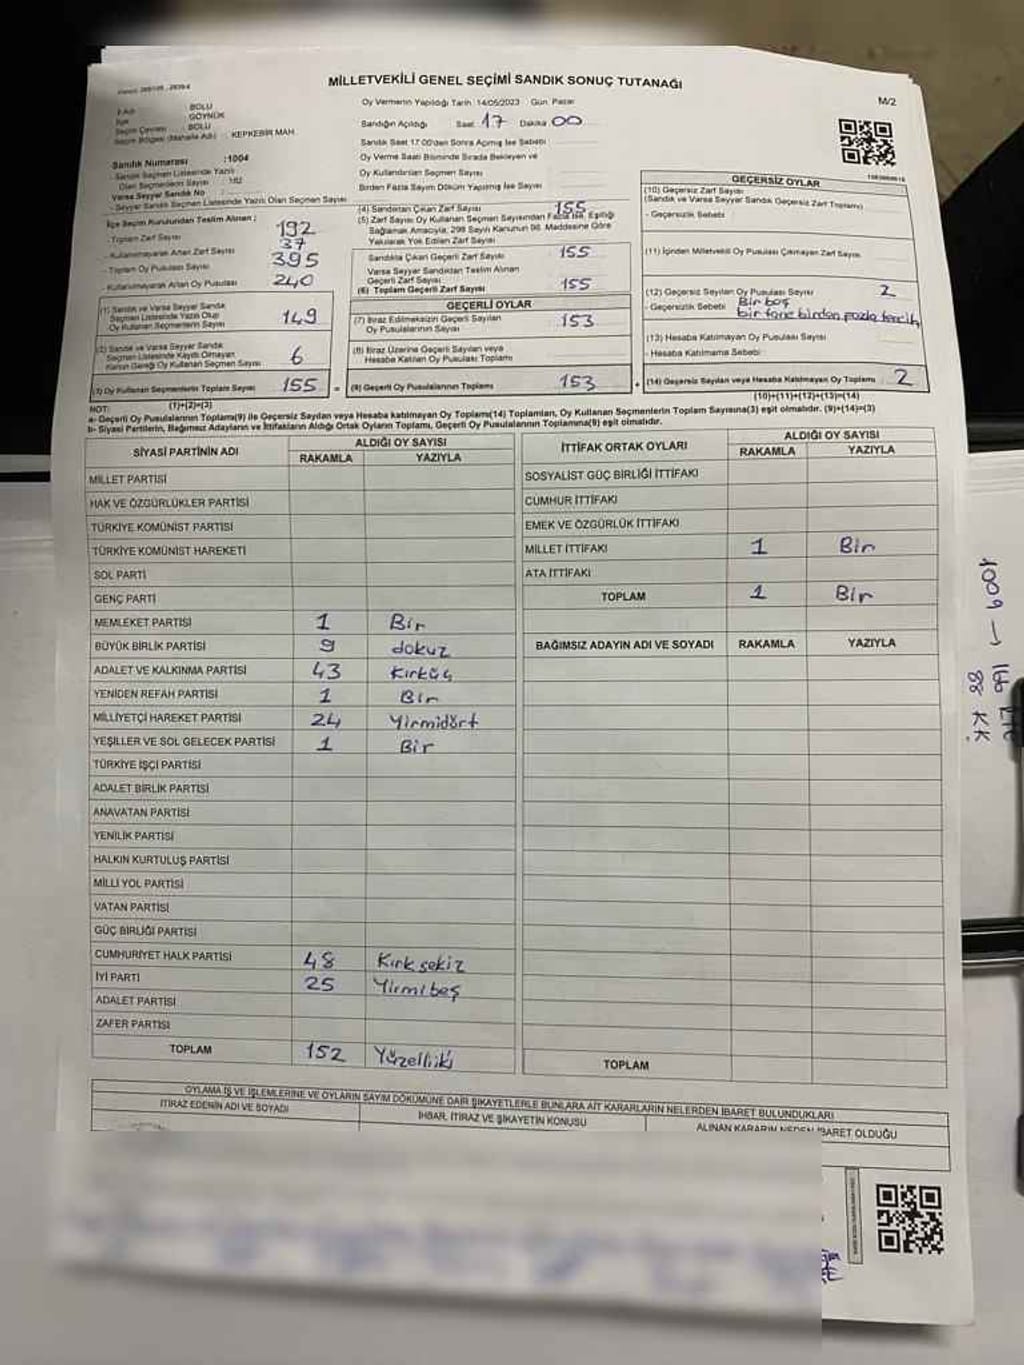 MİLLETVEKİLİ GENEL SEÇİMİ SANDIK SONUÇ TUTANAĞI
M/2
İli/Adı : BOLU
: GÖYNÜK
Seçim Çevresi : BOLU
Seçim Bölgesi (Mahalle Adı) : KEPKEBİR MAH.
Sandık Numarası :1004
Sandık Seçmen Listesinde Yazılı
Olan Seçmenlerin Sayısı
Varsa Seyyar Sandık No :
- Seyyar Sandık Seçmen Listesinde Yazılı Olan Seçmen Sayısı
Oy Vermenin Yapıldığı Tarih: 14/05/2023 Gün: Pazar
Sandığın Açıldığı Saat: 17 Dakika: 00
Sandık Saat 17:00'den Sonra Açılmış İse Sebebi
Oy Verme Saati Bitiminde Sırada Bekleyen ve
Oy Kullandırılan Seçmen Sayısı
Birden Fazla Sayım Döküm Yapılmış İse Sayısı
İlçe Seçim Kurulundan Teslim Alınan ;
- Toplam Zarf Sayısı 192
- Kullanılmayarak Artan Zarf Sayısı 37
- Toplam Oy Pusulası Sayısı 395
- Kullanılmayarak Artan Oy Pusulası 240
(1) Sandık ve Varsa Seyyar Sandık
Seçmen Listesinde Yazılı Olup
Oy Kullanan Seçmenlerin Sayısı 149
(2) Sandık ve Varsa Seyyar Sandık
Seçmen Listesinde Kayıtlı Olmayan
Kanun Gereği Oy Kullanan Seçmen Sayısı 6
(3) Oy Kullanan Seçmenlerin Toplam Sayısı 155 =
(1)+(2)=(3)
(4) Sandıktan Çıkan Zarf Sayısı 155
(5) Zarf Sayısı Oy Kullanan Seçmen Sayısından Fazla İse, Eşitliği
Sağlamak Amacıyla, 298 Sayılı Kanunun 98. Maddesine Göre
Yakılarak Yok Edilen Zarf Sayısı
Sandıkta Çıkan Geçerli Zarf Sayısı 155
Varsa Seyyar Sandıktan Teslim Alınan
Geçerli Zarf Sayısı
(6) Toplam Geçerli Zarf Sayısı 155
GEÇERLİ OYLAR
(7) İtiraz Edilmeksizin Geçerli Sayılan
Oy Pusulalarının Sayısı 153
(8) İtiraz Üzerine Geçerli Sayılan veya
Hesaba Katılan Oy Pusulası Toplamı
(9) Geçerli Oy Pusulalarının Toplamı 153 +
GEÇERSİZ OYLAR
(10) Geçersiz Zarf Sayısı
(Sandık ve Varsa Seyyar Sandık Geçersiz Zarf Toplamı)
- Geçersizlik Sebebi :
(11) İçinden Milletvekili Oy Pusulası Çıkmayan Zarf Sayısı
(12) Geçersiz Sayılan Oy Pusulası Sayısı 2
- Geçersizlik Sebebi : Bir boş
bir tane birden fazla tercih
(13) Hesaba Katılmayan Oy Pusulası Sayısı
- Hesaba Katılmama Sebebi :
(14) Geçersiz Sayılan veya Hesaba Katılmayan Oy Toplamı 2
(10)+(11)+(12)+(13)=(14)
NOT:
a- Geçerli Oy Pusulalarının Toplamı(9) ile Geçersiz Sayılan veya Hesaba katılmayan Oy Toplamı(14) Toplamları, Oy Kullanan Seçmenlerin Toplam Sayısına(3) eşit olmalıdır. (9)+(14)=(3)
b- Siyasi Partilerin, Bağımsız Adayların ve İttifakların Aldığı Ortak Oyların Toplamı, Geçerli Oy Pusulalarının Toplamına(9) eşit olmalıdır.
SİYASİ PARTİNİN ADI
ALDIĞI OY SAYISI
RAKAMLA YAZIYLA
MİLLET PARTİSİ
HAK VE ÖZGÜRLÜKLER PARTİSİ
TÜRKİYE KOMÜNİST PARTİSİ
TÜRKİYE KOMÜNİST HAREKETİ
SOL PARTİ
GENÇ PARTİ
MEMLEKET PARTİSİ 1 Bir
BÜYÜK BİRLİK PARTİSİ 9 dokuz
ADALET VE KALKINMA PARTİSİ 43 Kırküç
YENİDEN REFAH PARTİSİ 1 Bir
MİLLİYETÇİ HAREKET PARTİSİ 24 Yirmidört
YEŞİLLER VE SOL GELECEK PARTİSİ 1 Bir
TÜRKİYE İŞÇİ PARTİSİ
ADALET BİRLİK PARTİSİ
ANAVATAN PARTİSİ
YENİLİK PARTİSİ
HALKIN KURTULUŞ PARTİSİ
MİLLİ YOL PARTİSİ
VATAN PARTİSİ
GÜÇ BİRLİĞİ PARTİSİ
CUMHURİYET HALK PARTİSİ 48 Kırk sekiz
İYİ PARTİ 25 Yirmi beş
ADALET PARTİSİ
ZAFER PARTİSİ
TOPLAM 152 Yüzelliiki
İTTİFAK ORTAK OYLARI
ALDIĞI OY SAYISI
RAKAMLA YAZIYLA
SOSYALİST GÜÇ BİRLİĞİ İTTİFAKI
CUMHUR İTTİFAKI
EMEK VE ÖZGÜRLÜK İTTİFAKI
MİLLET İTTİFAKI 1 Bir
ATA İTTİFAKI
TOPLAM 1 Bir
BAĞIMSIZ ADAYIN ADI VE SOYADI RAKAMLA YAZIYLA
TOPLAM
OYLAMA İŞ VE İŞLEMLERİNE VE OYLARIN SAYIM DÖKÜMÜNE DAİR ŞİKAYETLERLE BUNLARA AİT KARARLARIN NELERDEN İBARET BULUNDUKLARI
İTİRAZ EDENİN ADI VE SOYADI
İHBAR, İTİRAZ VE ŞİKAYETİN KONUSU
ALINAN KARARIN NEDEN İBARET OLDUĞU
1009 →
88 KK